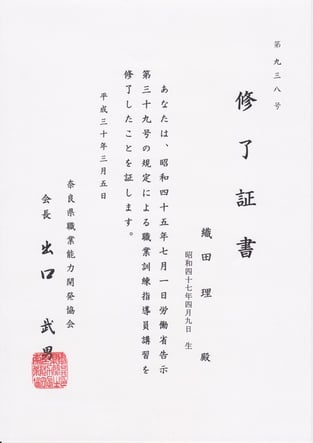 第九三八号
修了証書
織田理殿
昭和四十七年四月九日生
あなたは、昭和四十五年七月一日労働省告示
第三十九号の規定による職業訓練指導員講習を
修了したことを証します。
平成三十年三月五日
奈良県職業能力開発協会
会長 出口武男